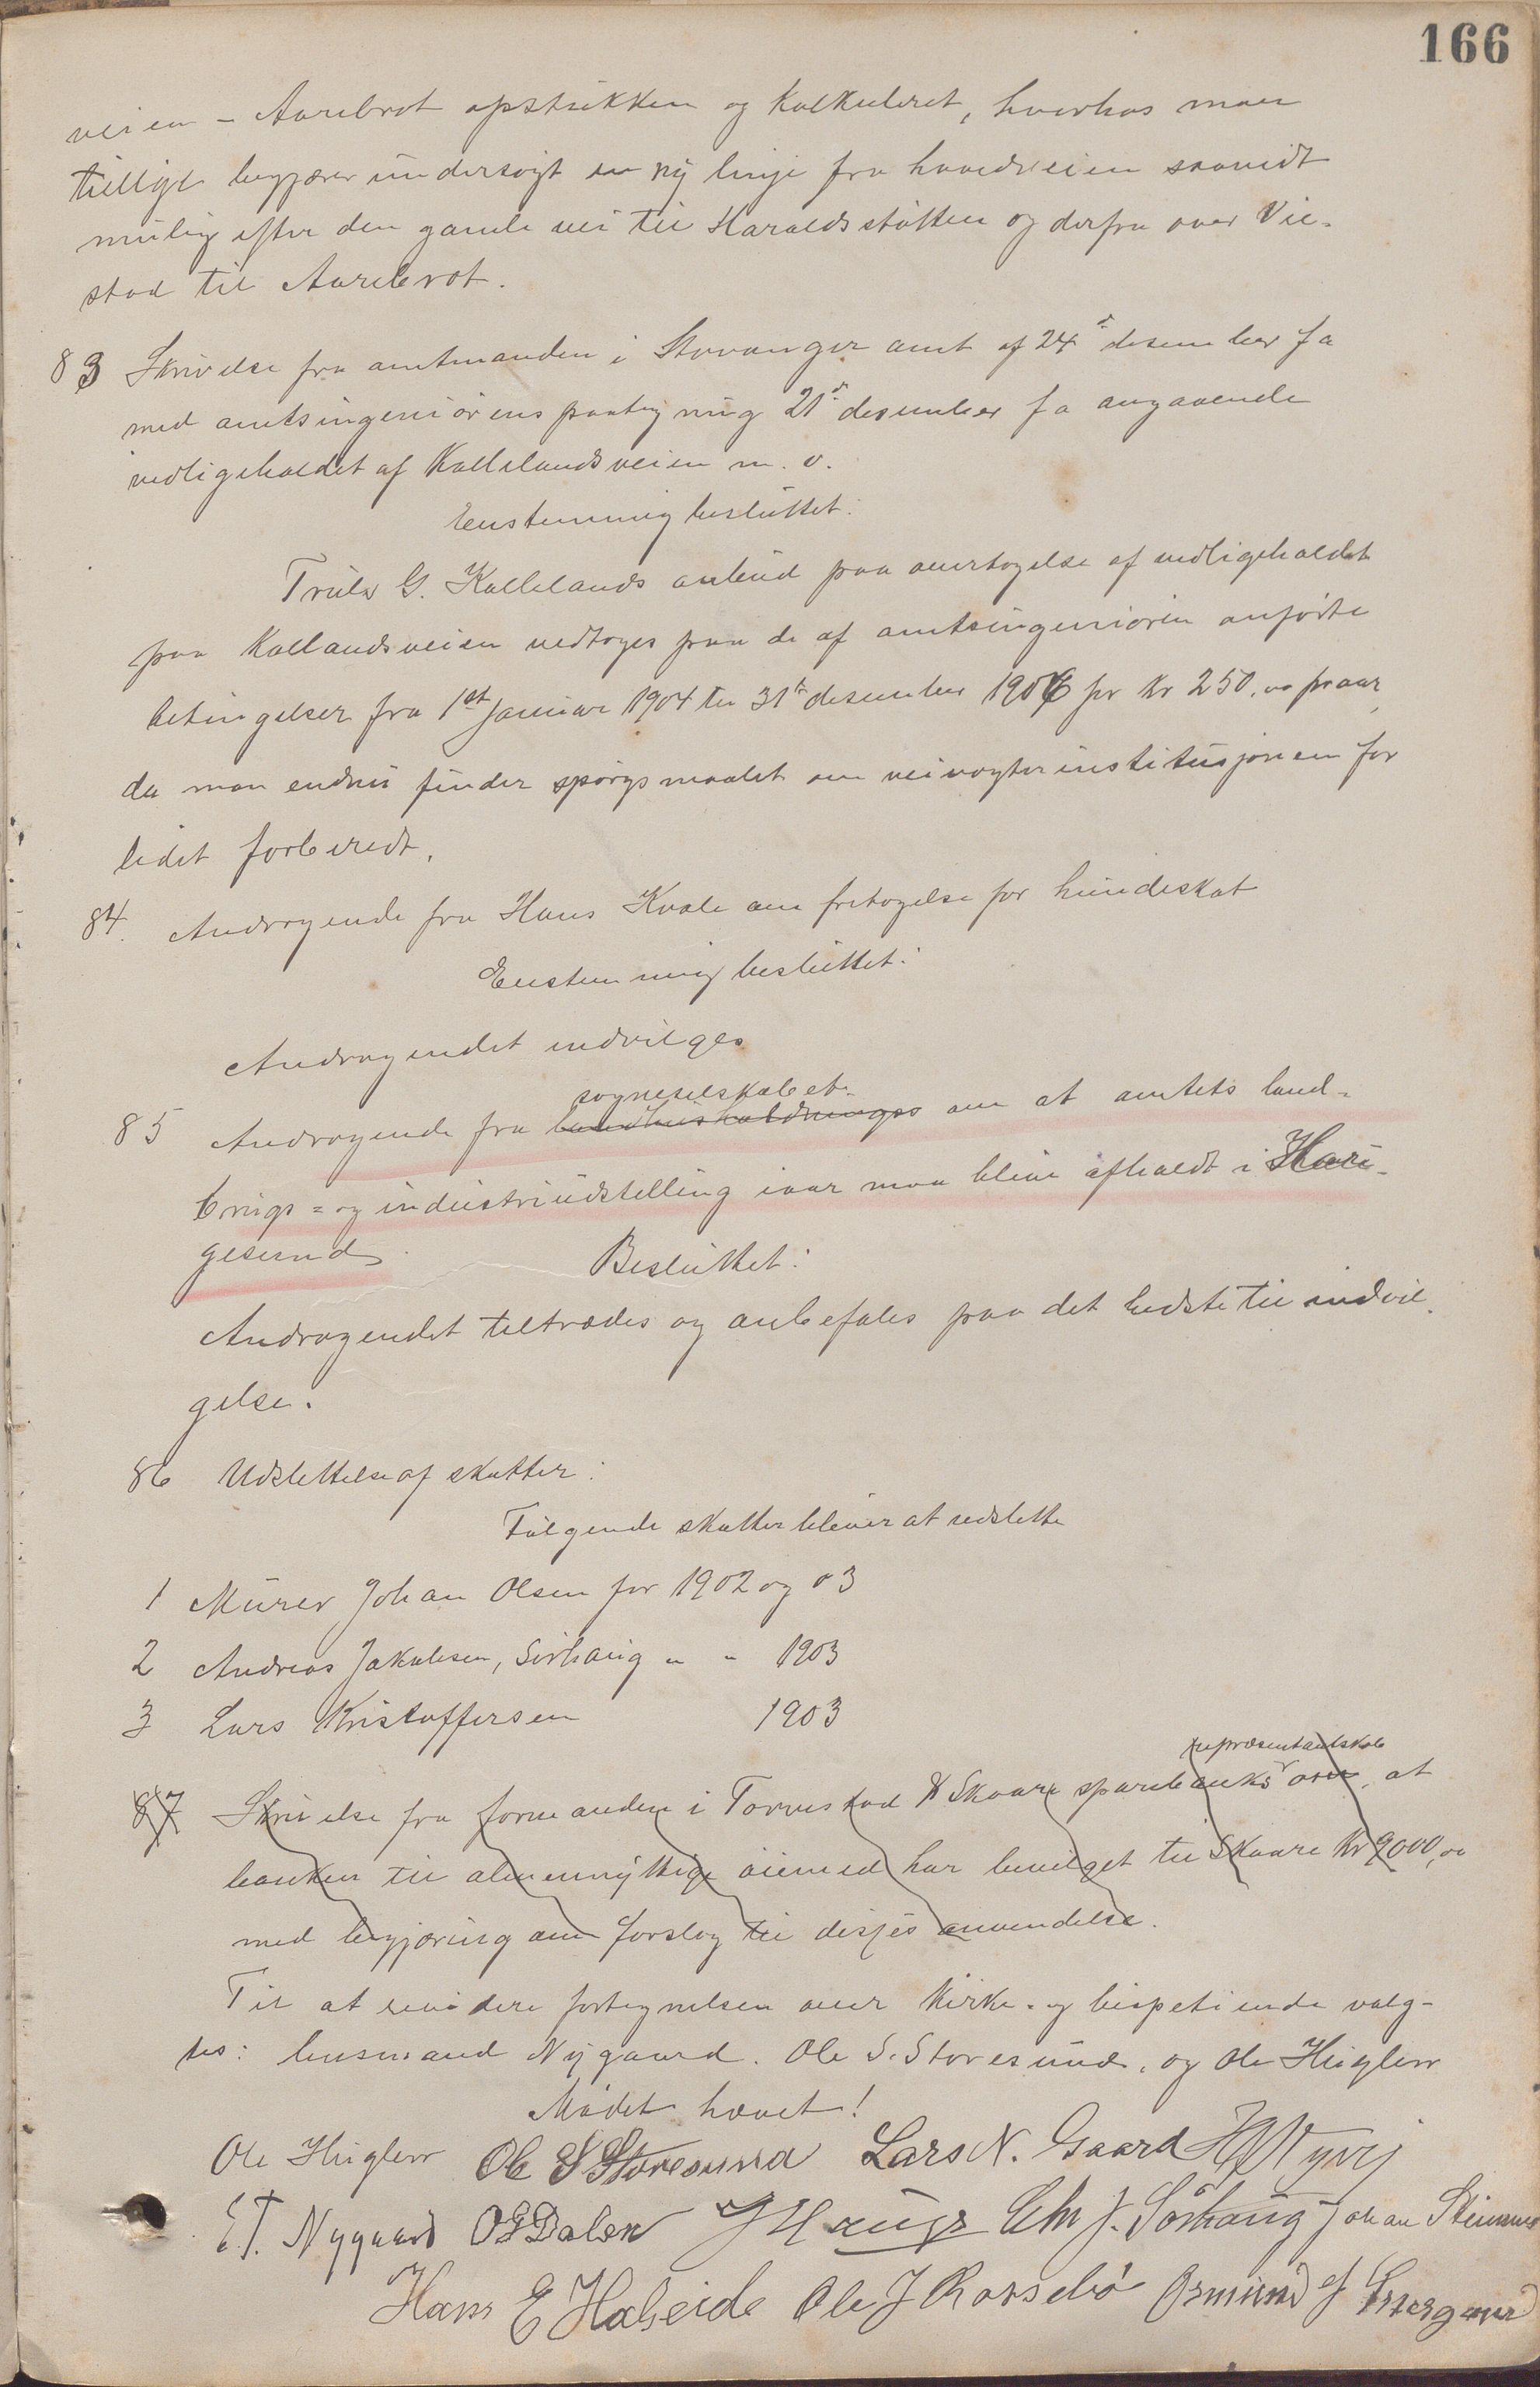 166
veien - Aarebrot opstukken og kalkuleret, hvorhos man
tillige begjærer undersøgt en ny linje fra hovedveien saavidt
mulig efter den gamle vei til Haraldsstøtten og derfra over Vie-
stad til Aarebrot.
83 Skrivelse fra amtmanden i Stavanger amt af 24de desember f a
med amtsingeniørens paategning 21de desember f a angaaende
vedligeholdet af Kallelandsveien m. v.
Enstemmig besluttet:
Truls G. Kallelands anbud paa overtagelse af vedligeholdet
paa Kallandsveien vedtages paa de af amtsingeniøren anførte
betingelser fra 1st januar 1904 til 31te desember 1906 for Kr 250,00 pr aar,
da man endnu finder spørgsmaalet om veivogterinstitusjonen for
lidet forberedt.
84. Andragende fra Hans Kvale om fritagelse for hundeskat
Enstemmig besluttet:
Andragendet indvilges
sogneselskabet
85 Andragende fra landhusholdnings om at amtets land-
brugs= og industriudstilling iaar maa blive afholdt i Hau-
gesund
Besluttet:
Andragendet tiltrædes og anbefales paa det bedste til indvil-
gelse.
86 Udslettelse af skatter:
Følgende skatter bliver at udslette
1 Murer Johan Olsen for 1902 og 03
2 Andreas Jakobsen, Sørhaug " " 1903
3 Lars Kristoffersen 1903
repræsentantskab
87 Skrivelse fra formanden i Torvestad & Skaare sparebanks om, at
banken til almennyttige øiemed har bevilget til Skaare Kr 9000,00
med begjæring om forslag til disses anvendelse.
Til at revidere fortegnelsen over kirke- og bispetiende valg-
tes: lensmand Nygaard. Ole S. Storesund, og Ole Huglen
Mødet hævet!
Ole Huglen Ole S Storesund Lars N. Gaard
E T. Nygaard O G Dalen J Hauge Chr J. Sørhaug Johan
Hans E Haheide Ole J Rossebø Osmund